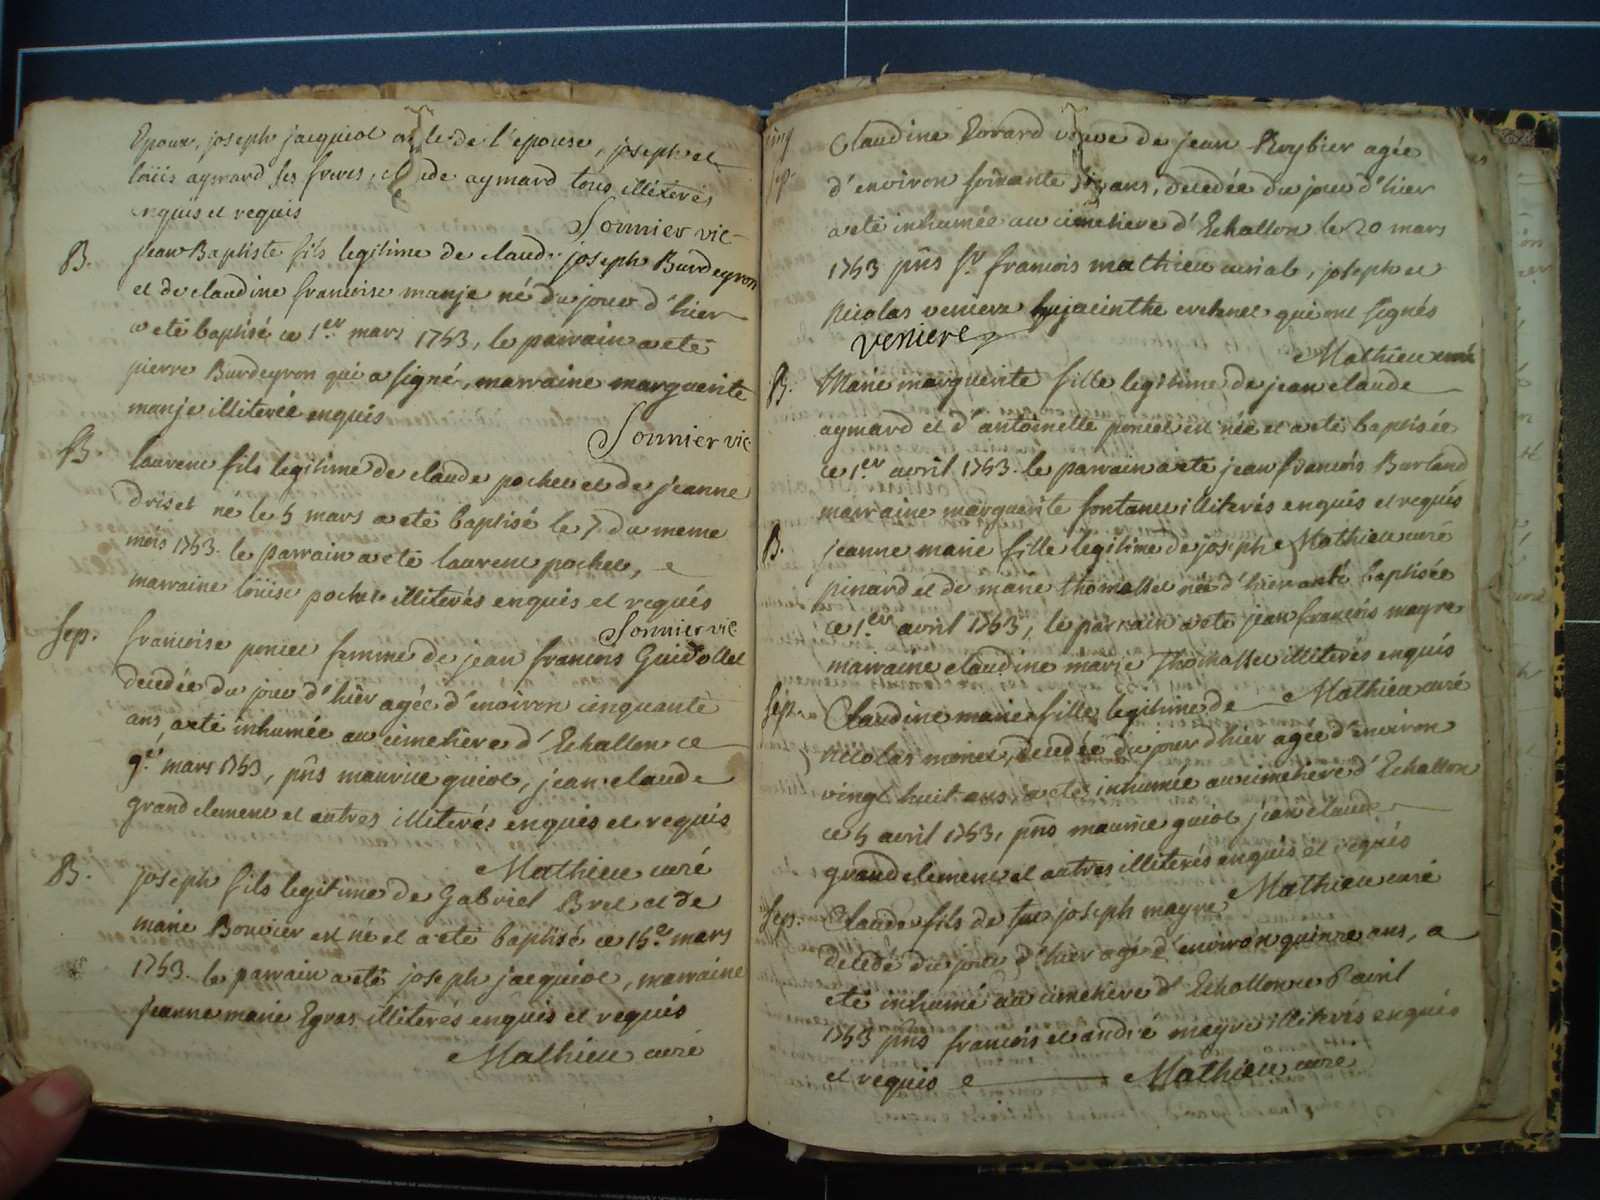 Epoux, joseph jacquiot oncle de l'epouse, joseph et
loüis aymard ses freres, claude aymard tous illiterés
enquis et requis
Sonnier vic
B. jean Baptiste fils legitime de claude joseph Burdeyron
et de claudine francoise manje né du jour d'hier
a eté baptisé ce 1er mars 1753, le parrain a eté
pierre Burdeyron qui a signé, marraine marguerite
manje illiterée enquis
Sonnier vic
B. laurent fils legitime de claude pochet et de jeanne
driset né le 5 mars a eté baptisé le 7 du meme
mois 1753. le parrain a eté laurent pochet,
marraine loüise pochet illiterés enquis et requis
Sonnier vic
Sep. francoise poncet femme de jean francois Guidollet
decedée du jour d'hier agée d'environ cinquante
ans, a eté inhumée au cimetiere d'Echallon ce
9e mars 1753, pñs maurice guiot, jean claude
grand clement et autres illiterés enquis et requis
Mathieu curé
B. joseph fils legitime de Gabriel Bret et de
marie Bouvier est né et a eté baptisé ce 15e mars
1753. le parrain a eté joseph jacquiot, marraine
jeanne marie Egras illiterés enquis et requis
Mathieu curé
Sep. Claudine Evrard veuve de jean Reybier agée
d'environ soixante dix ans, decedée du jour d'hier
a eté inhumée au cimetiere d'Echallon le 20 mars
1753 pñs Sr francois mathieu curial, joseph et
Nicolas verniere hyjacinthe qui ont signés
verniere
Mathieu curé
B. Marie marguerite fille legitime de jean claude
aymard et d'antoinette poncet est née et a eté baptisée
ce 1er avril 1753. le parrain a eté jean francois Burland
marraine marguerite fontanet illiterés enquis et requis
Mathieu curé
B. jeanne marie fille legitime de joseph
pinard et de marie thomasset née d'hier a eté baptisée
ce 1er avril 1753, le parrain a eté jean francois mayre
marraine claudine marie Thomasset illiterés enquis
Mathieu curé
Sep. Claudine marie fille legitime de
nicolas monet, decedée du jour d'hier agée d'environ
vingt huit ans, a eté inhumée au cimetiere d'Echallon
ce 5 avril 1753, pñs maurice guiot jean claude
grand clement et autres illiterés enquis et requis
Mathieu curé
Sep. Claude fils de feu joseph mayre
decedé du jour d'hier agé d'environ quinze ans, a
eté inhumé au cimetiere d'Echallon ce 8 avril
1753 pñs francois et andré mayre illiterés enquis
et requis Mathieu curé